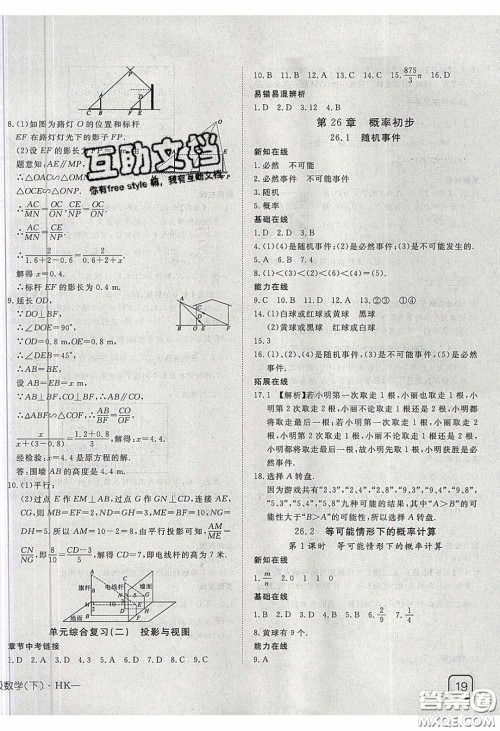 8.(1)如图为路灯O的位置和标杆
EF在路灯灯光下的影子FP.
(2)设EF的影长为
题意知:AE∥MP,
∴△OAC∽△OM
△OCE∽△ONP,
∴AC/MN=OC/ON,CE/NP=
∴AC/MN=CE/NP.
∴2/(1.6+2-0.6)=x/(0.6-x).
解得:x=0.4.
答:影长为0.4 m.
9.延长OD,
∵DO⊥BF,
∴∠DOE=90°.
∵OD=0.8,OE=0.8,
∴∠DEB=45°.
∵AB⊥BF,
∴∠BAE=45°,
∴AB=BE.
设AB=EB=x,
∵AB⊥BF,CO⊥BF,
∴AB∥CO,
∴△ABF∽△COF,∴AB/BF=CO/OF,
x/(x+(3-0.8))=(1.2+0.8)/3,解得:x=4.4.
经检验:x=4.4是原方程的解.
答:围墙AB的高度是4.4 m.
10.(1)平行;
(2)过点E作EM⊥AB,过点G作GN⊥
CD,则MB=EF=2,ND=GH=3,ME=BF=10,NG=
DH=5.所以AM=10-2=8,由平行投影可知,AM/ME=
CN/NG,即8/10=(CD-3)/5,解得CD=7,即电线杆的高为7米.
旗杆 电线杆 墙面
地面
单元综合复习(二) 投影与视图
章节中考链接
1.D 2.A 3.D 4.C 5.A 6.C 7.D 8.D 9.A
级数学(下)·HK—
10.B 11.B 12.C 13.B 14.D 15.875/3 π 16.B
易错易混辨析
1.D 2.D 3.12 4.B
第26章 概率初步
26.1 随机事件
新知在线
1.必然 不可能
2.必然事件 不可能事件
3.随机
5.概率
基础在线
1.D 2.B 3.D 4.B 5.A 6.D
7.(1)(4)是随机事件;(2)是必然事件;(3)是不可能发生的.
8.(1)(5)(6)是必然事件;(2)(3)(4)是随机事件.
能力在线
9.C 10.D 11.D 12.A 13.②③ ①④
14.(1)白球或红球或黄球 黑球
(2)黄球或黑球或白球 红球
15.3
16.(1)白球或红球 (2)黄球 (3)红球
拓展在线
17.1 【解析】若小明第一次取走1根,小丽也取走1根,小
明第二次取2根,小丽不论取走1根还是两根,小明都
将取走最后一根;若小明第一次取走1根,小丽取走2
根,小明第二次取1根,小丽不论取走1根还是两根,小
明都将取走最后一根,由小明先取,且小明获胜是必
然事件.
18.选择A转盘.
因为游戏共有“2.3”,“2.8”,“2.9”,“4.3”,“4.8”,“4.9”,
“5.3”,“5.8”“5.9”九种可能的结果,其中“A>B”的可
能性大于“B>A”的可能性,因此选择A转盘.
26.2 等可能情形下的概率计算
第1课时 等可能情形下的概率计算
新知在线
1.m/n
基础在线
1.B 2.A 3.C 4.B 5.B 6.2/9 7.1/2
8.黄球有9个.
能力在线
19
互助文档
你有free style 嘛,我有互助文档
答案圈
MXQE.COM